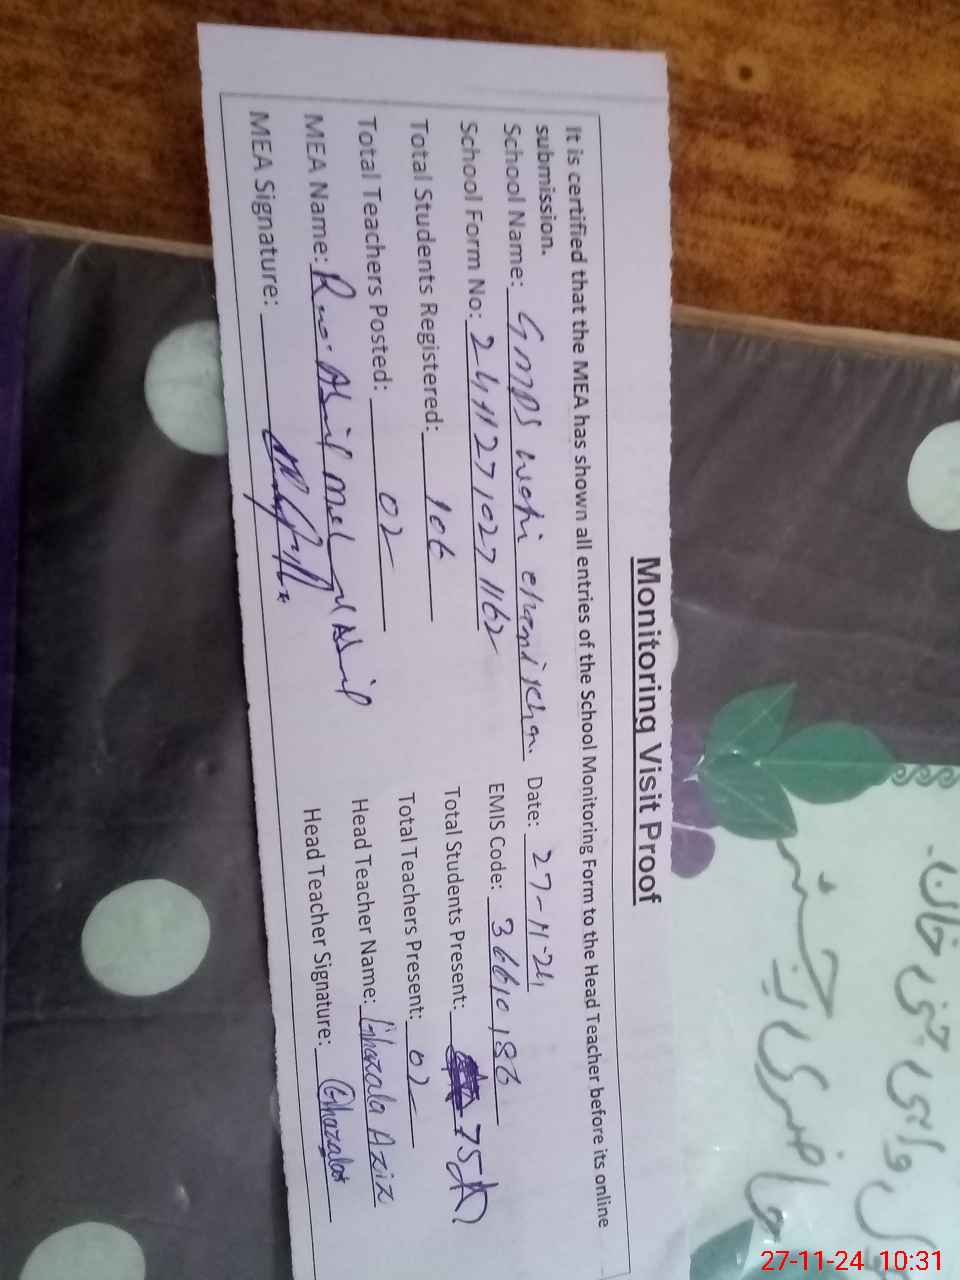 Monitoring Visit Proof
It is certified that the MEA has shown all entries of the School Monitoring Form to the Head Teacher before its online
submission.
School Name: GMPS Date: 27-11-24
School Form No: EMIS Code: 36610186
Total Students Registered: 106 Total Students Present: 75
Total Teachers Posted: 02 Total Teachers Present: 02
MEA Name: Head Teacher Name: Ghazala Aziz
MEA Signature: Head Teacher Signature: Ghazala
واہی چنی خان
حاضری
27-11-24 10:31